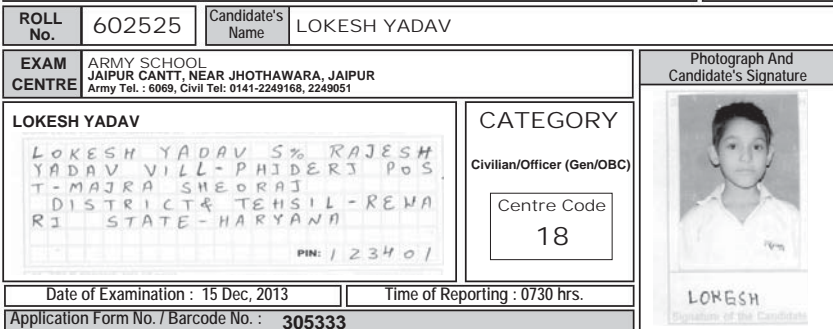 ROLL No. 602525 Candidate's Name LOKESH YADAV
EXAM CENTRE ARMY SCHOOL
JAIPUR CANTT, NEAR JHOTHAWARA, JAIPUR
Army Tel. : 6069, Civil Tel: 0141-2249168, 2249051
Photograph And
Candidate's Signature
LOKESH YADAV
LOKESH YADAV S% RAJESH
YADAV VILL-PHIDERI POS
T-MAJRA SHEORAJ
DISTRICT& TEHSIL-REWA
RI STATE-HARYANA
PIN: 123401
CATEGORY
Civilian/Officer (Gen/OBC)
Centre Code
18
LOKESH
Signature of the Candidate
Date of Examination : 15 Dec, 2013 Time of Reporting : 0730 hrs.
Application Form No. / Barcode No. : 305333